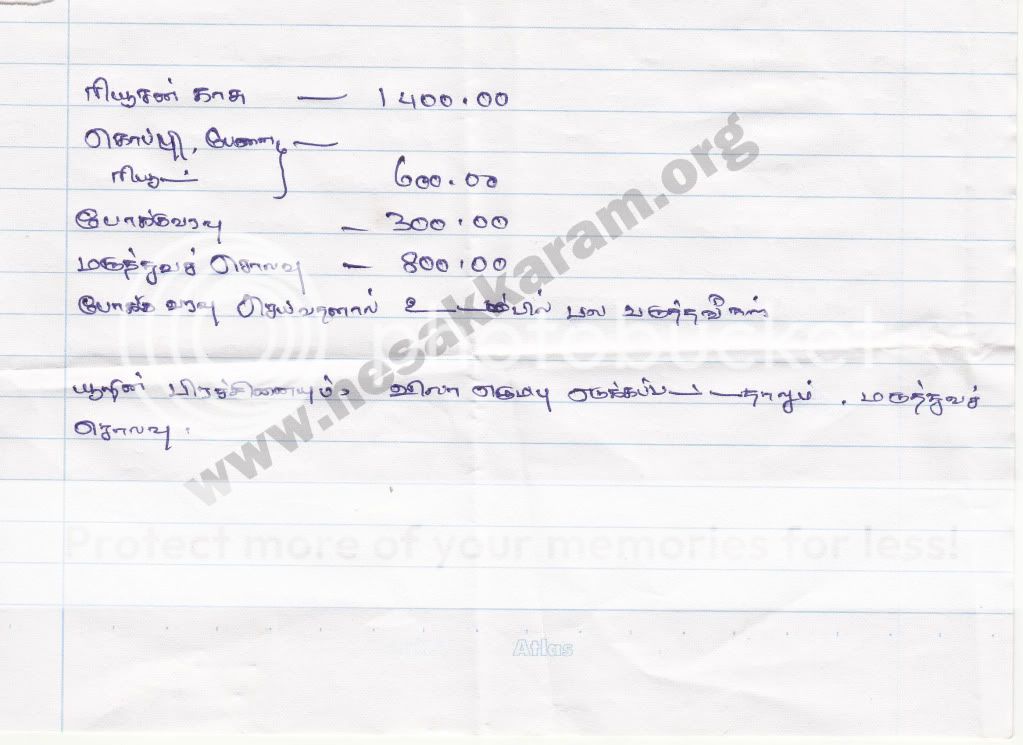 ரியூசன் காசு — 1400.00
கொப்பி, பேனை —
ரியூட் } 600.00
போக்குவரவு — 300.00
மருத்துவச் செலவு — 800.00
போக்கு வரவு செய்வதனால் உடம்பில் பல வருத்தங்கள்
யூரின் பிரச்சினையும், விலா எலும்பு எடுக்கப்பட்டதாலும். மருத்துவச்
செலவு.
www.nesakkaram.org
photobucket
Protect more of your memories for less!
Atlas